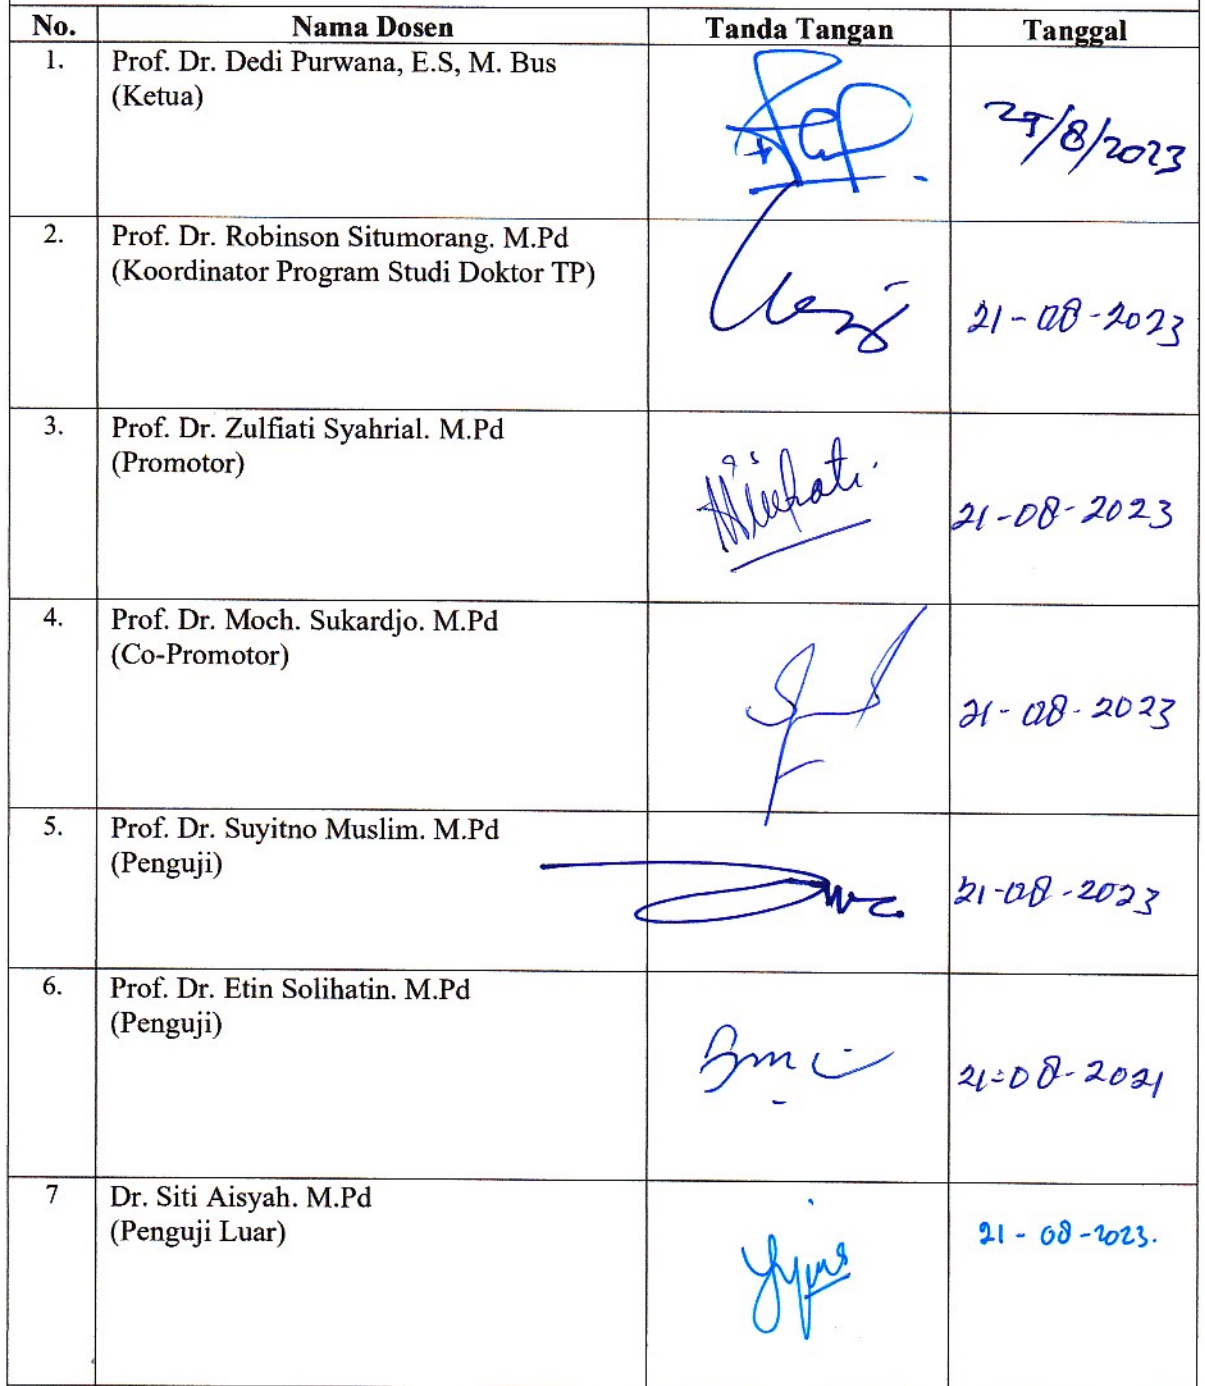 No. Nama Dosen Tanda Tangan Tanggal
1. Prof. Dr. Dedi Purwana, E.S, M. Bus
(Ketua)
29/8/2023
2. Prof. Dr. Robinson Situmorang. M.Pd
(Koordinator Program Studi Doktor TP)
21-08-2023
3. Prof. Dr. Zulfiati Syahrial. M.Pd
(Promotor)
21-08-2023
4. Prof. Dr. Moch. Sukardjo. M.Pd
(Co-Promotor)
21-08-2023
5. Prof. Dr. Suyitno Muslim. M.Pd
(Penguji)
21-08-2023
6. Prof. Dr. Etin Solihatin. M.Pd
(Penguji)
21-08-2021
7 Dr. Siti Aisyah. M.Pd
(Penguji Luar)
21-08-2023.